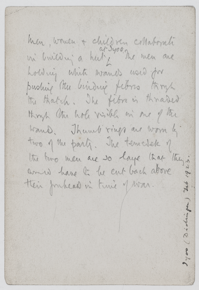 Men, women & children collaborate
in building a hut at Iyoo. The men are
holding which wands used for
pushing the binding fibres through
the thatch. The fibre is threaded
through the hole visible in one of the
wands. Thumb rings are worn by
two of the party. The
the two men are so large that they
would have to be cut back above
their forehead in time of war.
Iyoo (Didinga) Feb 1922.